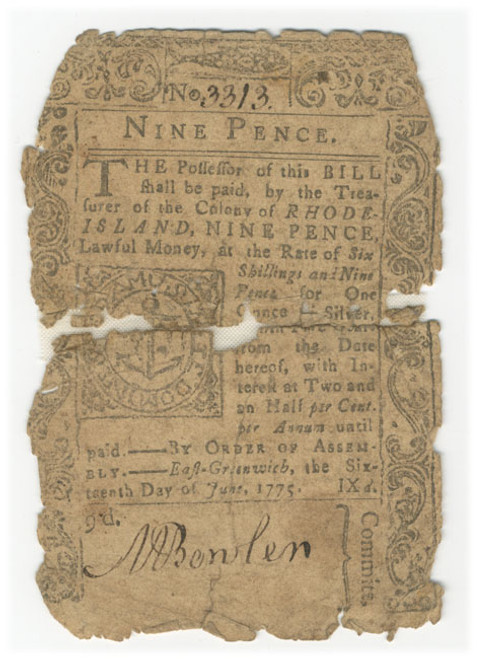 No. 3313.
NINE PENCE.
THE Poſſeſſor of this BILL
ſhall be paid, by the Trea-
ſurer of the Colony of RHODE-
ISLAND, NINE PENCE,
Lawful Money, at the Rate of Six
Shillings and Nine
Pence for One
Ounce Silver,
from the Date
hereof, with In-
tereſt at Two and
an Half per Cent.
per Annum until
paid.——BY ORDER OF ASSEM-
BLY.——Eaſt-Greenwich, the Six-
teenth Day of June, 1775. IXd.
9d.
Bowlen
Committe.